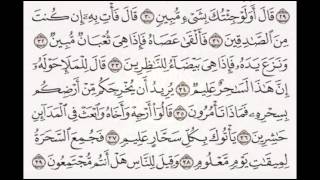 ٢٩ قَالَ أَوَلَوْ جِئْتُكَ بِشَىْءٍ مُّبِينٍ ٣٠ قَالَ فَأْتِ بِهِۦٓ إِن كُنتَ
مِنَ ٱلصَّـٰدِقِينَ ٣١ فَأَلْقَىٰ عَصَاهُ فَإِذَا هِىَ ثُعْبَانٌ مُّبِينٌ ٣٢
وَنَزَعَ يَدَهُۥ فَإِذَا هِىَ بَيْضَآءُ لِلنَّـٰظِرِينَ ٣٣ قَالَ لِلْمَلَإِ حَوْلَهُۥٓ
إِنَّ هَـٰذَا لَسَـٰحِرٌ عَلِيمٌ ٣٤ يُرِيدُ أَن يُخْرِجَكُم مِّنْ أَرْضِكُم
بِسِحْرِهِۦ فَمَاذَا تَأْمُرُونَ ٣٥ قَالُوٓا۟ أَرْجِهْ وَأَخَاهُ وَٱبْعَثْ فِى ٱلْمَدَآئِنِ
حَـٰشِرِينَ ٣٦ يَأْتُوكَ بِكُلِّ سَحَّارٍ عَلِيمٍ ٣٧ فَجُمِعَ ٱلسَّحَرَةُ
لِمِيقَـٰتِ يَوْمٍ مَّعْلُومٍ ٣٨ وَقِيلَ لِلنَّاسِ هَلْ أَنتُم مُّجْتَمِعُونَ ٣٩